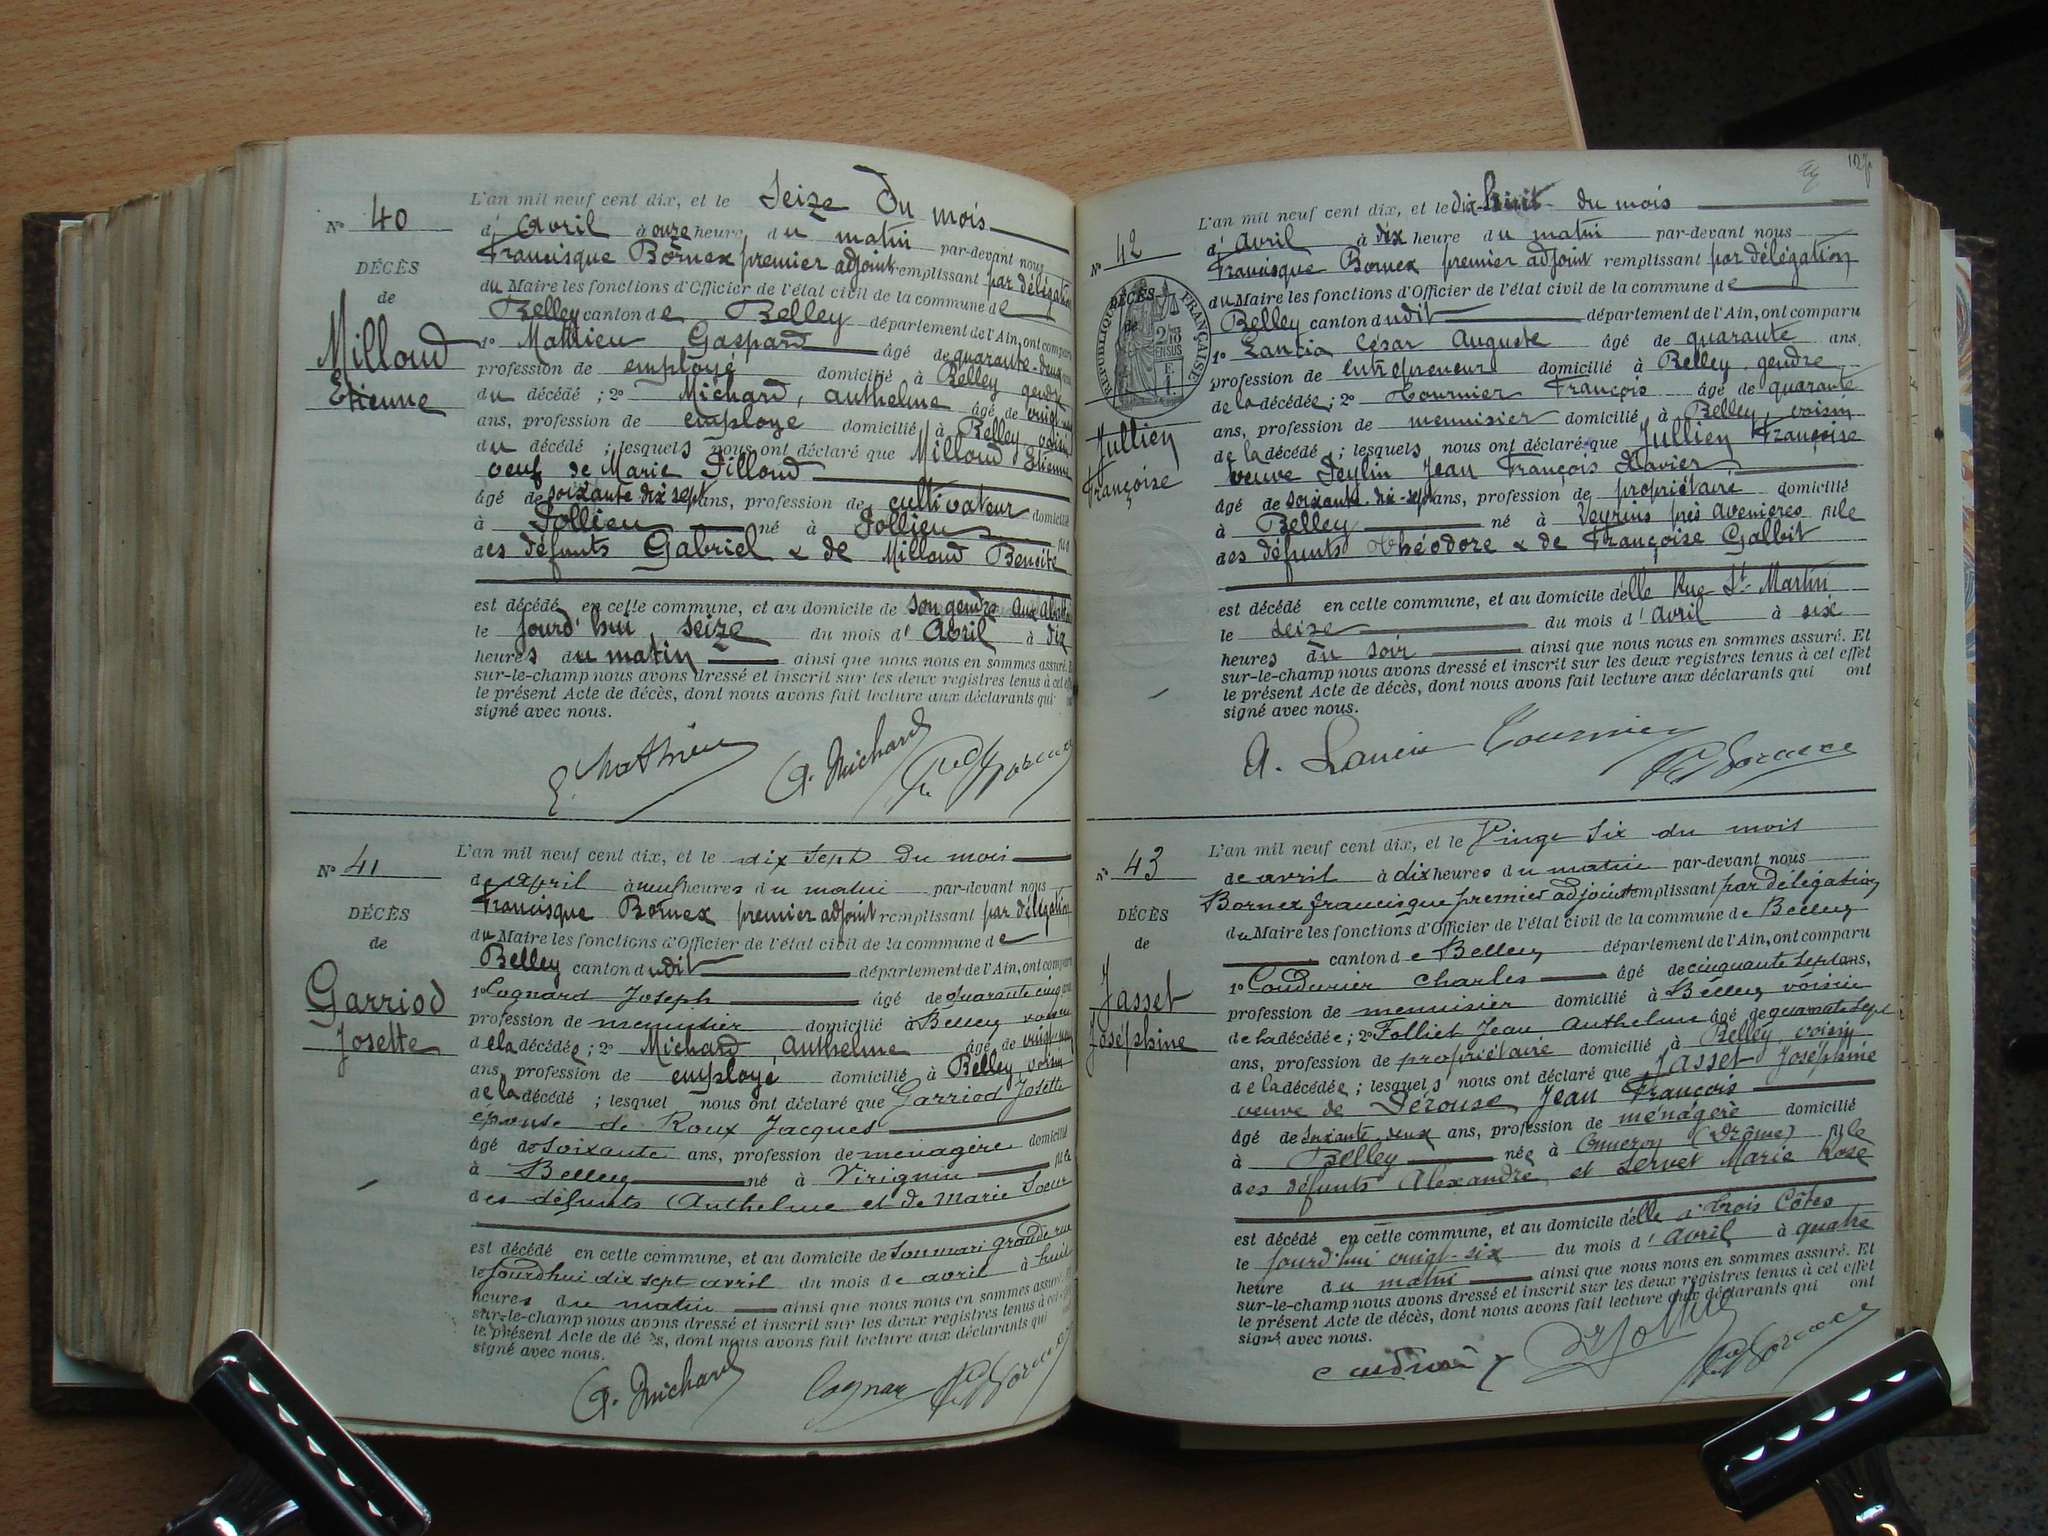 N° 40
DÉCÈS
de
Milloud
Etienne
L'an mil neuf cent dix, et le Seize Du mois
d'Avril à onze heure du matin par-devant nous
Francisque Bornex premier adjoint remplissant par délégation
du Maire les fonctions d'Officier de l'état civil de la commune de
Belley canton de Belley département de l'Ain, ont comparu
1° Mathieu Gaspard âgé de quarante-deux
profession de employé domicilié à Belley gendre
du décédé ; 2° Michard, Anthelme âgé de
ans, profession de employé domicilié à Belley, voisin
du décédé ; lesquels nous ont déclaré que Milloud Etienne
veuf de Marie Pilloud
âgé de soixante dix sept ans, profession de cultivateur domicilié
à Pollieu né à Pollieu fils
des défunts Gabriel & de Milloud Benoite
est décédé en cette commune, et au domicile de son gendre
le jourd'hui seize du mois d'Avril à dix
heures du matin ainsi que nous nous en sommes assuré. Et
sur-le-champ nous avons dressé et inscrit sur les deux registres tenus à cet effet
le présent Acte de décès, dont nous avons fait lecture aux déclarants qui
signé avec nous.
G. Mathieu A. Michard
N° 41
DÉCÈS
de
Garriod
Josette
L'an mil neuf cent dix, et le dix sept Du mois
de avril à neuf heures du matin par-devant nous
Francisque Bornex premier adjoint remplissant par délégation
du Maire les fonctions d'Officier de l'état civil de la commune de
Belley canton dudit département de l'Ain, ont comparu
1° Cognard Joseph âgé de quarante cinq ans
profession de menuisier domicilié à Belley voisin
de la décédée ; 2° Michard, Anthelme âgé de
ans, profession de employé domicilié à Belley, voisin
de la décédé ; lesquel nous ont déclaré que Garriod Josette
épouse de Roux Jacques
âgé de soixante ans, profession de ménagère domicilié
à Belley né à Virignin fille
des défunts Anthelme et de Marie Soeur
est décédé en cette commune, et au domicile de son mari grande rue
le jourdhui dix sept avril du mois de avril à huit
heures du matin ainsi que nous nous en sommes assuré. Et
sur-le-champ nous avons dressé et inscrit sur les deux registres tenus à cet effet
le présent Acte de décès, dont nous avons fait lecture aux déclarants qui
signé avec nous.
A. Michard Cognar
N° 42
DÉCÈS
de
RÉPUBLIQUE FRANÇAISE
Jullien
Françoise
L'an mil neuf cent dix, et le dix-huit du mois
d'avril à dix heure du matin par-devant nous
Francisque Bornex premier adjoint remplissant par délégation
du Maire les fonctions d'Officier de l'état civil de la commune de
Belley canton dudit département de l'Ain, ont comparu
1° Lancia César Auguste âgé de quarante ans,
profession de entrepreneur domicilié à Belley, gendre
de la décédée ; 2° Tournier François âgé de quarante
ans, profession de menuisier domicilié à Belley, voisin
de la décédé ; lesquels nous ont déclaré que Jullien Françoise
veuve Peylin Jean François Xavier
âgé de soixante-dix-sept ans, profession de propriétaire domicilié
à Belley né à Veyrins près Avenieres fille
des défunts Théodore & de Françoise Galbit
est décédé en cette commune, et au domicile d'elle Rue St Martin
le seize du mois d'avril à six
heures du soir ainsi que nous nous en sommes assuré. Et
sur-le-champ nous avons dressé et inscrit sur les deux registres tenus à cet effet
le présent Acte de décès, dont nous avons fait lecture aux déclarants qui ont
signé avec nous.
A. Lancia Tournier
N° 43
DÉCÈS
de
Jasset
Joséphine
L'an mil neuf cent dix, et le Vingt six du mois
de avril à dix heures du matin par-devant nous
Bornex francisque premier adjoint remplissant par délégation
du Maire les fonctions d'Officier de l'état civil de la commune de Belley
canton de Belley département de l'Ain, ont comparu
1° Coudurier Charles âgé de cinquante sept ans,
profession de menuisier domicilié à Belley voisin
de la décédée ; 2° Folliet Jean Anthelme âgé de quarante sept
ans, profession de propriétaire domicilié à Belley voisin
de la décédée ; lesquels nous ont déclaré que Jasset Joséphine
veuve de Dérouse Jean François
âgé de soixante deux ans, profession de ménagère domicilié
à Belley née à (Drôme) fille
des défunts Alexandre et Servet Marie Rose
est décédé en cette commune, et au domicile d'elle, Trois Côtes
le jourd'hui vingt-six du mois d'avril à quatre
heure du matin ainsi que nous nous en sommes assuré. Et
sur-le-champ nous avons dressé et inscrit sur les deux registres tenus à cet effet
le présent Acte de décès, dont nous avons fait lecture aux déclarants qui ont
signé avec nous.